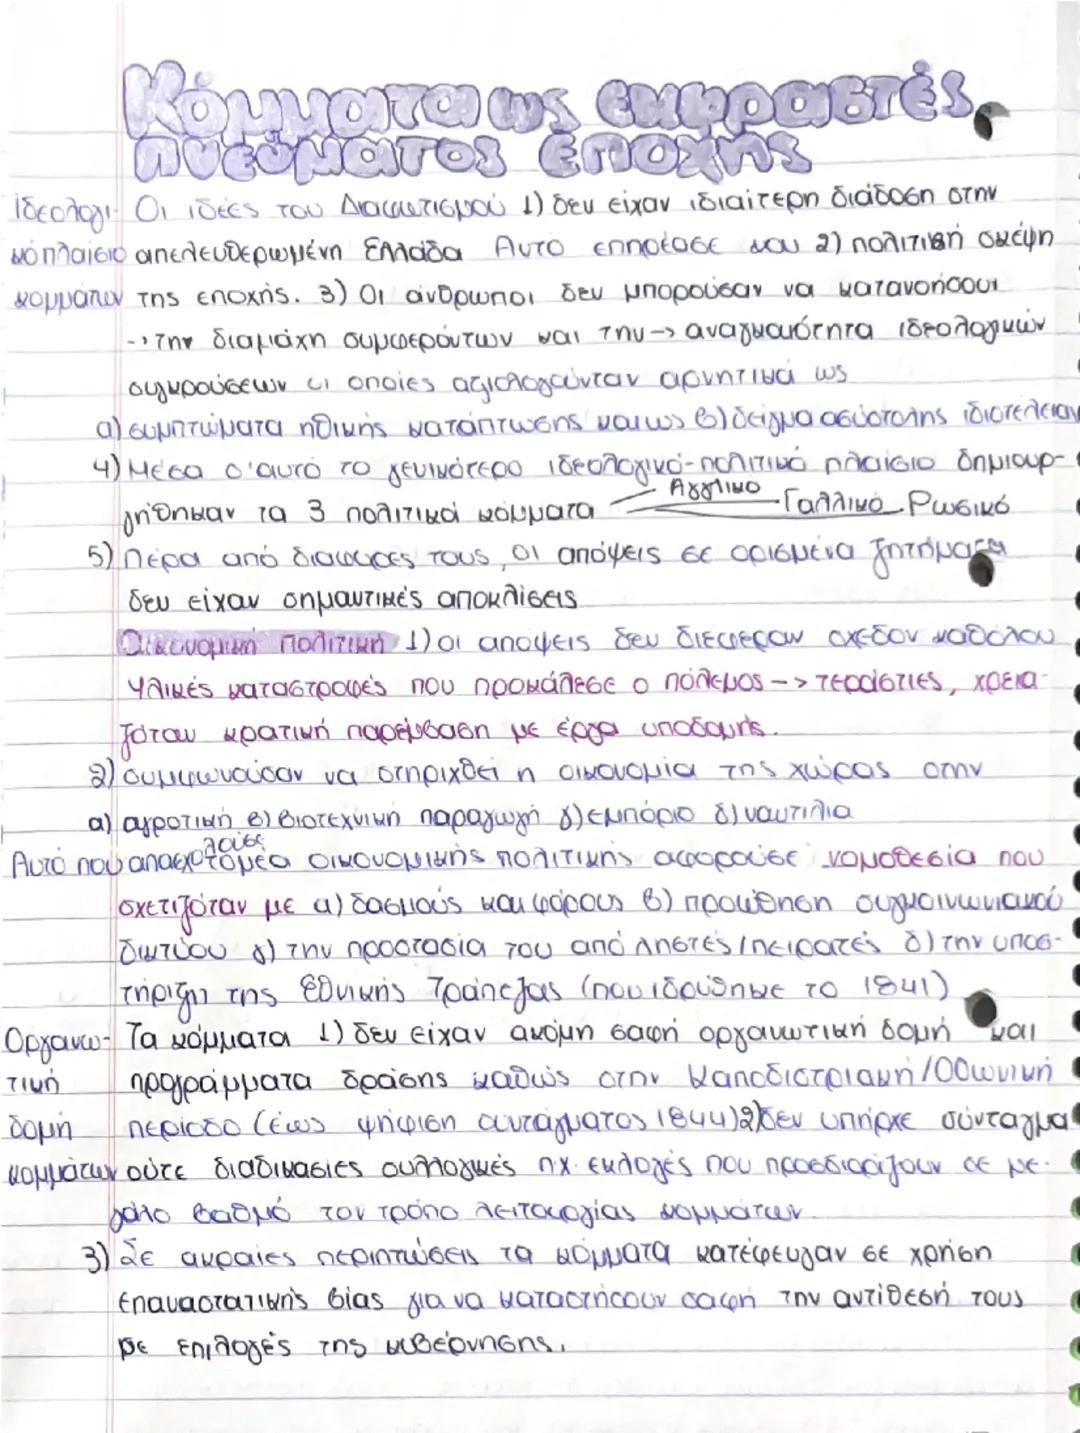 Κόμματα ως εκφραστές
πνεύματος εποχής
Ιδεολογι- Οι ιδέες του Διαφωτισμού 1) δεν είχαν ιδιαίτερη διάδοση στην
κό πλαίσιο απελευθερωμένη Ελλάδα Αυτό επηρέασε και 2) πολιτική σκέψη
κομμάτων της εποχής. 3) Οι άνθρωποι δεν μπορούσαν να κατανοήσουν
-> την διαμάχη συμφερόντων και την -> αναγκαιότητα ιδεολογικών
συγκρούσεων οι οποίες αξιολογούνταν αρνητικά ως
α) συμπτώματα ηθικής κατάπτωσης και ως β) δείγμα ασύστολης ιδιοτέλειαν
4) Μέσα σ'αυτό το γενικότερο ιδεολογικό-πολιτικό πλαίσιο δημιουρ-
γήθηκαν τα 3 πολιτικά κόμματα Αγγλικο Γαλλικό Ρωσικό
5) Πέρα από διαφορές τους, οι απόψεις σε ορισμένα ζητήματα
δεν είχαν σημαντικές αποκλίσεις
Οικονομική πολιτική 1) οι απόψεις δεν διέφεραν σχεδόν καθόλου
Υλικές καταστροφές που προκάλεσε ο πόλεμος --> τεράστιες, χρεια-
ζόταν κρατική παρέμβαση με έργα υποδομής.
2) συμφωνούσαν να στηριχθεί η οικονομία της χώρας στην
α) αγροτική β) βιοτεχνική παραγωγή γ) εμπόριο δ) ναυτιλία
Αυτό που απασχολούσε τομέα οικονομικής πολιτικής αφορούσε νομοθεσία που
σχετιζόταν με α) δασμούς και φόρους β) προώθηση συγκοινωνιακού
δικτύου γ) την προστασία του από ληστές/πειρατές δ) την υποσ-
τήριξη της Εθνικής Τράπεζας (που ιδρύθηκε το 1841)
Οργανω- Τα κόμματα 1) δεν είχαν ακόμη σαφή οργανωτική δομή και
τική προγράμματα δράσης καθώς στην Καποδιστριακή/Οθωνική
δομή περίοδο (έως ψήφιση συντάγματος 1844) 2) δεν υπήρχε σύνταγμα
κομμάτων ούτε διαδικασίες συλλογικές π.χ. εκλογές που προσδιορίζουν σε με-
γάλο βαθμό τον τρόπο λειτουργίας κομμάτων
3) Σε ακραίες περιπτώσεις τα κόμματα κατέφευγαν σε χρήση
επαναστατικής βίας για να καταστήσουν σαφή την αντίθεσή τους
με επιλογές της κυβέρνησης.